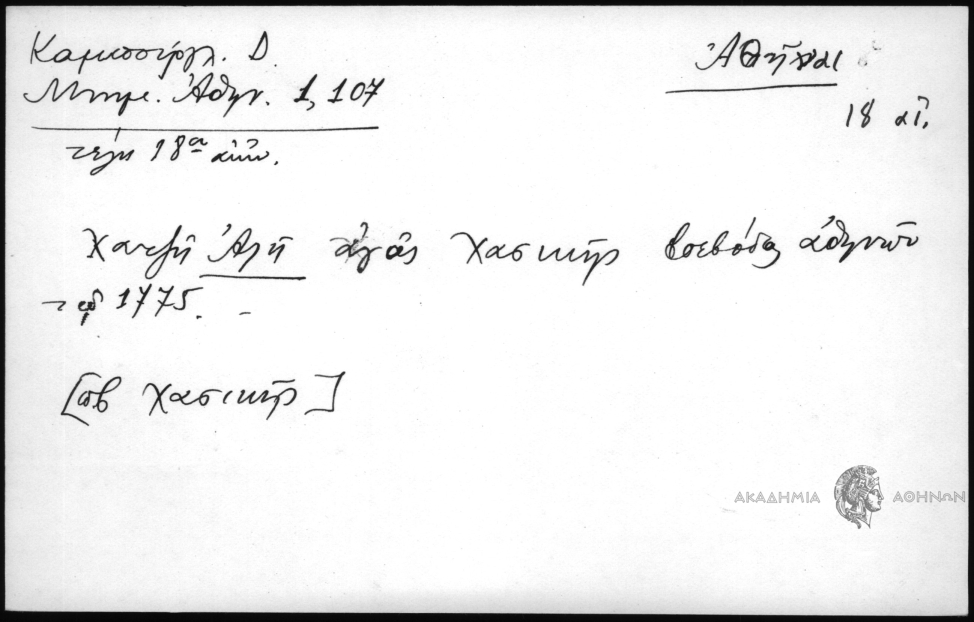 Καμπούρογλ. Δ.
Μνημ. Ἀθην. 1, 107
Ἀθῆναι
18 αἰ.
τέλη 18ου αἰῶν.
Χατζῆ Ἀλῆ ἀγᾶς Χασεκῆς βοεβόδας Ἀθηνῶν
τῷ 1775.
Χασεκῆς]
ΑΚΑΔΗΜΙΑ ΑΘΗΝΩΝ